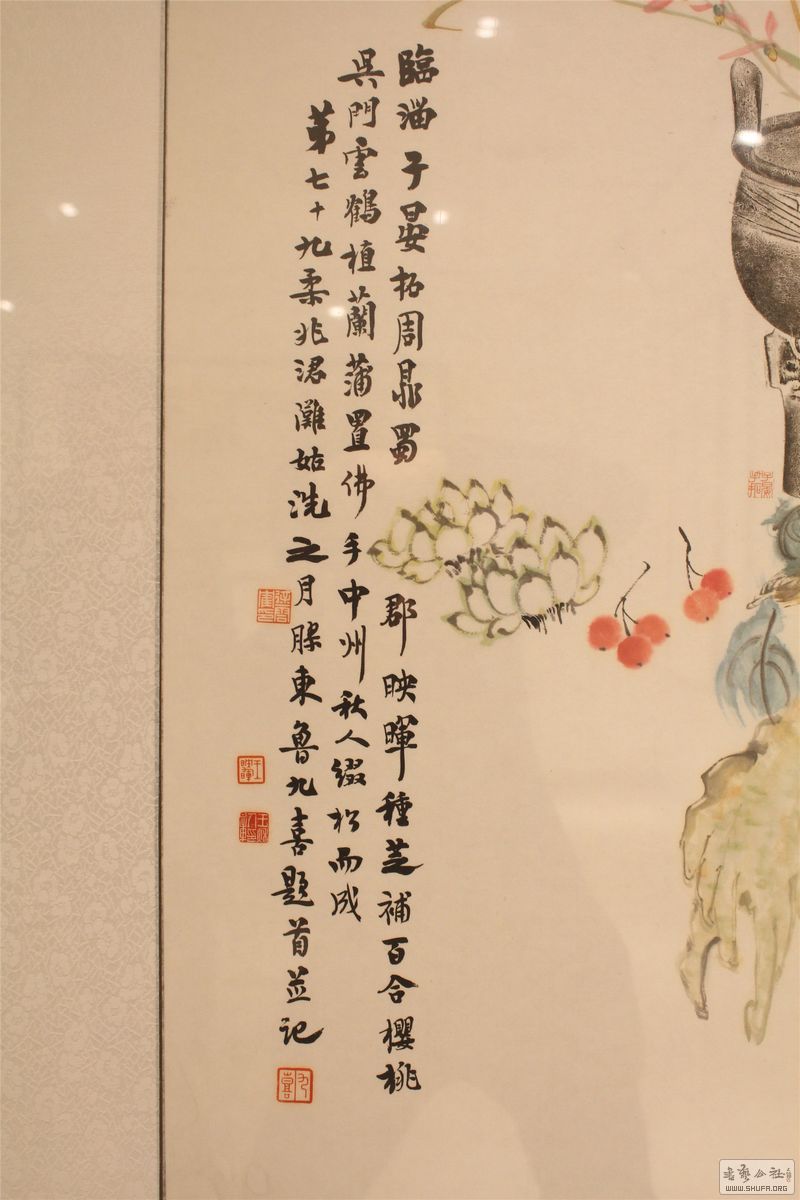 臨淄子晏拓周鼎蜀郡映暉種芝補百合櫻桃
吳門雲鶴植蘭蒲置佛手中州秋人綴松而成
第七十九柔兆涒灘姑洗之月膠東魯九喜題首並記
九喜
WWW.SHUFA.ORG